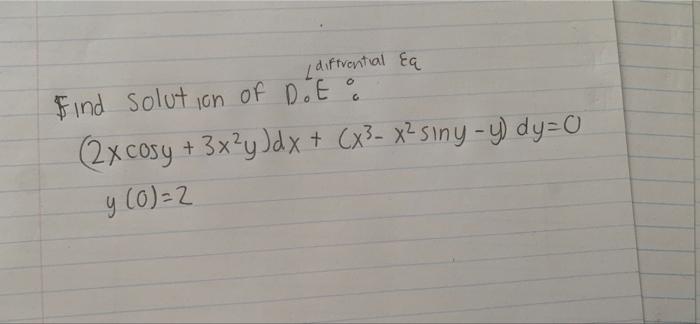 diffrential Eq
Find solution of D.E :
(2xcosy + 3x²y)dx + (x³- x² siny - y) dy=0
y (0)=2